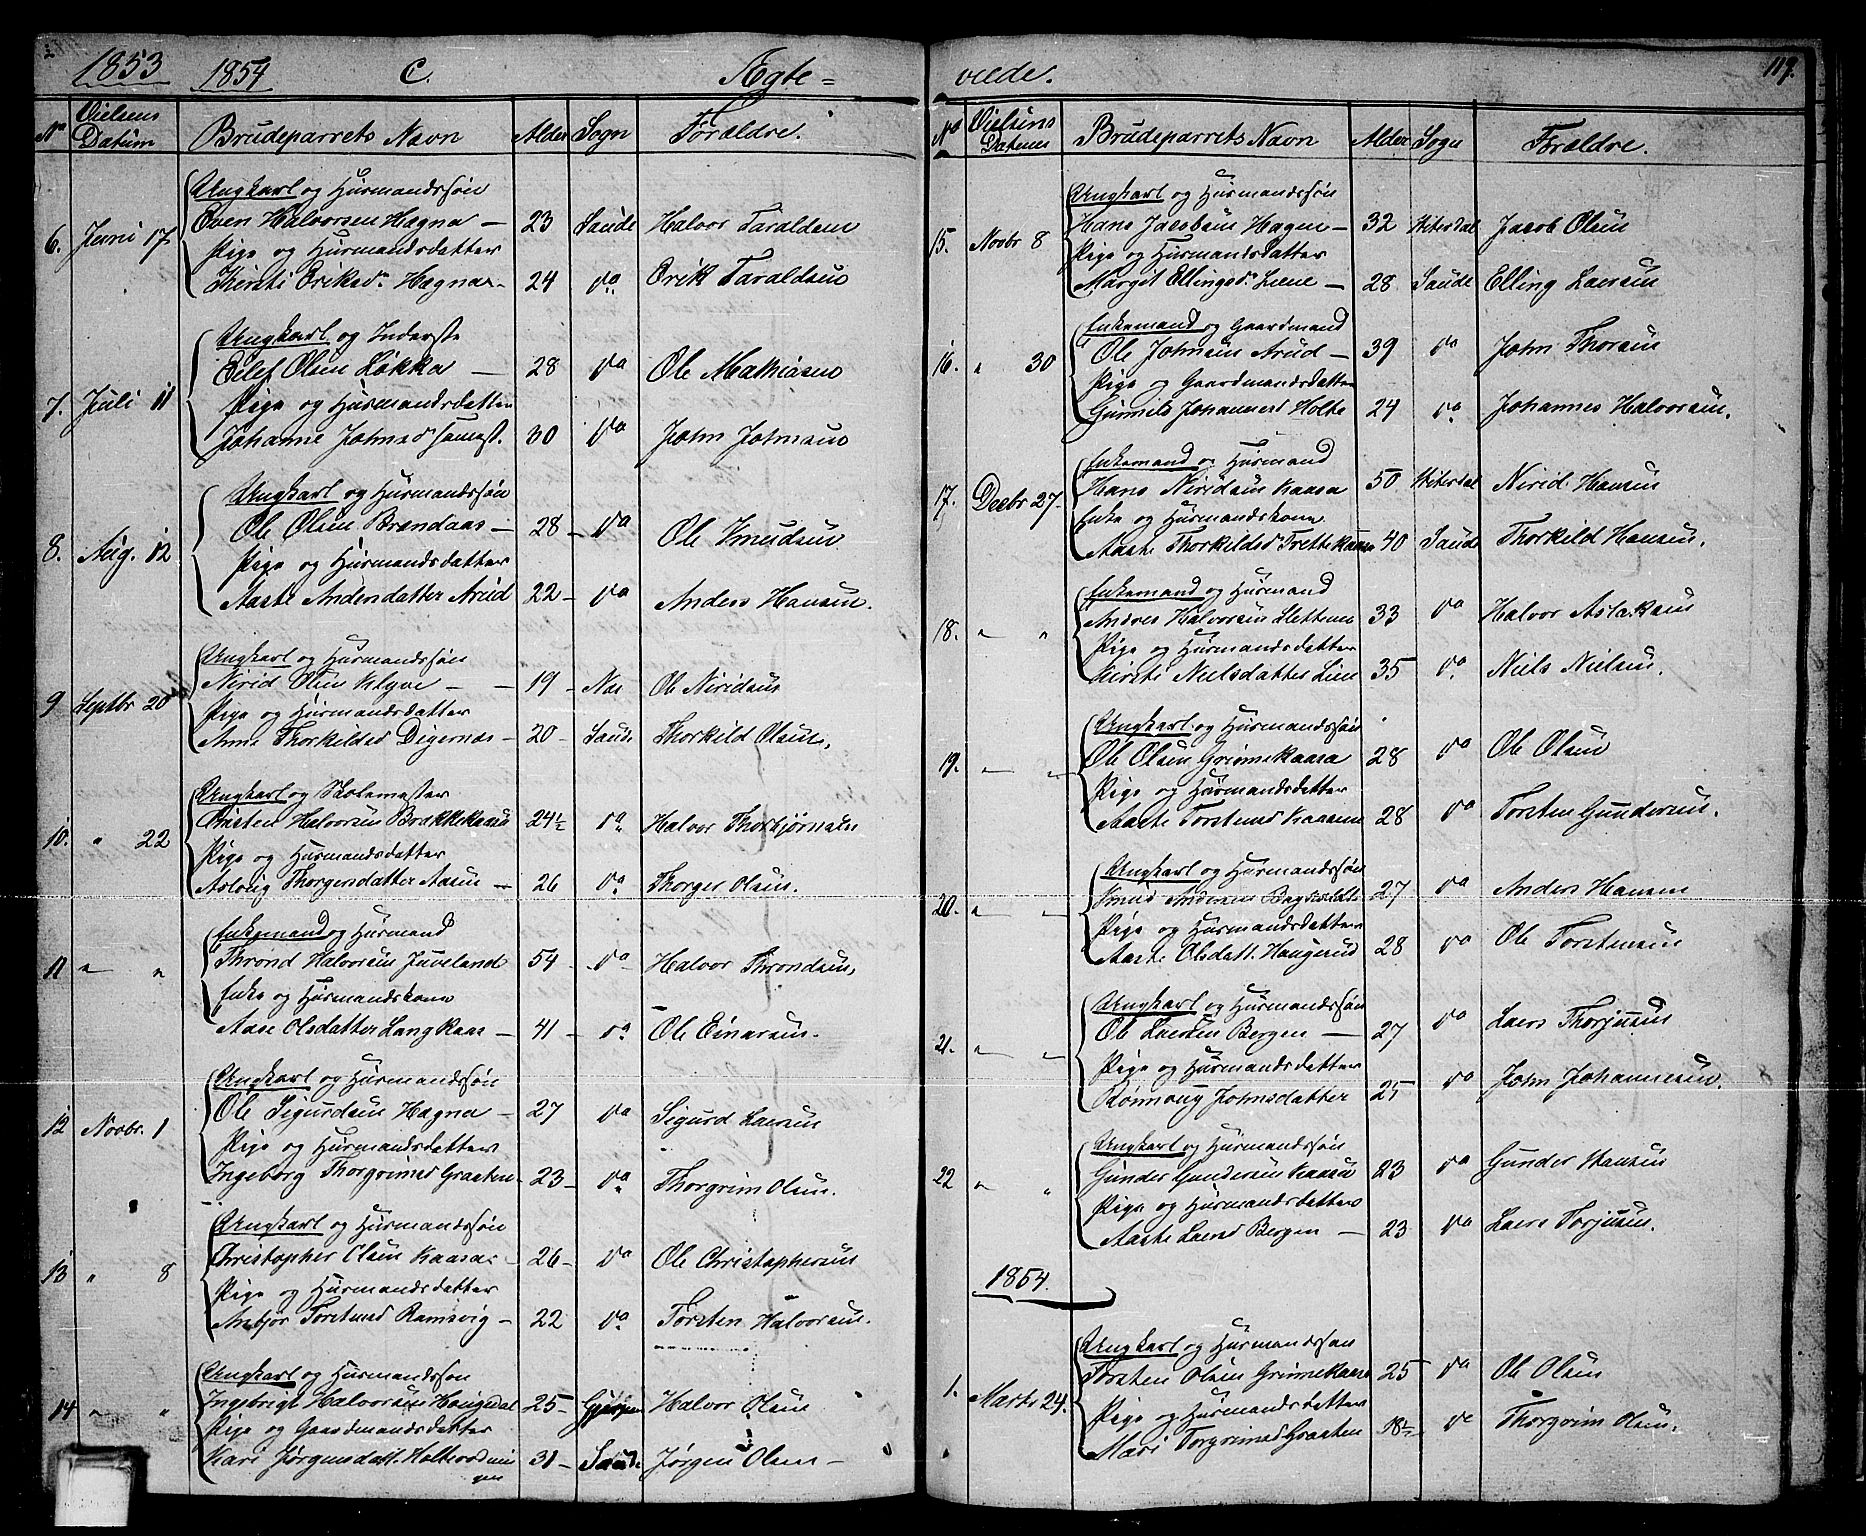 1853 1854 C. Ægte= viede. 119.
No Vielsens Datum Brudeparrets Navn Alder Sogn Forældre.
Ungkarl og Huusmandssøn
6. Juni 17 Even Halvorsen Hagna — 23 Saude Halvor Taraldsen
Pige og Huusmandsdatter
Kirsti Eriksd. Hagna — 24 do Erik Taraldsen
Ungkarl og Inderste
Eilef Olsen Løkka — 28 do Ole Mathiasen
7. Juli 11 Pige og Huusmandsdatter
Johanne Johnsd. 30 do John Johnsen
Ungkarl og Huusmandssøn
Ole Olsen Brendaas — 28 — do Ole Knudsen
8. Aug. 12 Pige og Huusmandsdatter
Aaste Andersdatter Arud 22 — do Anders Hansen.
Ungkarl og Huusmandssøn
Nirid Olsen Klyve — 19 — Næs Ole Niridsen
9 Septbr 20 Pige og Huusmandsdatter
Anne Thorkildsd Digernæs — 20 — Saude Thorkild Olsen,
Ungkarl og Skolemester
Christen Halvorsen Brækkekaasa 24½ do Halvor Thorbjørnsen
10. " 22 Pige og Huusmandsdatter
Aslaug Thorgersdatter Aasen — 26 do Thorger Olsen.
Enkemand og Huusmand
11 " " Thrond Halvorsen Juveland 54 — do Halvor Throndsen,
Enke og Huusmandskone
Aase Olsdatter Langkaas — 41 — do Ole Einarsen.
Ungkarl og Huusmandssøn
Ole Sigurdsen Hagna — 27 do Sigurd Laersen
12 Novbr. 1 Pige og Huusmandsdatter
Ingeborg Thorgrimsd Graaten 23 — do Thorgrim Olsen.
Ungkarl og Huusmandssøn
Christopher Olsen Kaasa — 26 — do Ole Christophersen
13 " 8 Pige og Huusmandsdatter
Anbjør Torstensd Ramsvig — 22 do Torsten Halvorsen.
Ungkarl og Huusmandssøn
14 " " Ingebrigt Halvorsen Haugsdal 25 — Halvor Olsen
Pige og Gaardmandsdatter
Kari Jørgensdatt. 31 — Saude Jørgen Olsen —
No Vielsens Datum Brudeparrets Navn Alder Sogn Forældre.
Ungkarl og Huusmandssøn
15. Novbr 8 Hans Jacobsen Hagen — 32 Hiterdal Jacob Olsen
Pige og Huusmandsdatter
Margit Ellingsd. Liene — 28 Saude Elling Laersen
Enkemand og Gaardmand
16. " 30 Ole Johnsen Arud — 39 do John Thorsen
Pige og Gaardmandsdatter
Gunnild Johannesd Holte 24 do Johannes Halvorsen.
Enkemand og Huusmand
17. Decbr 27. Hans Niridsen Kaasa 50 Hiterdal Nirid Hansen
Enke og Huusmandskone
Aaste Thorkildsd Trettekaasa 40 Saude Thorkild Hansen.
Enkemand og Huusmand
18. " " Andres Halvorsen Slettene 33 do Halvor Aslaksen
Pige og Huusmandsdatter
Kirsti Nielsdatter Lien 35 do Niels Nielsen.
Ungkarl og Huusmandssøn
19. " " Ole Olsen Grimekaasa 28 do Ole Olsen
Pige og Huusmandsdatter
Aaste Torstensd Kaasene 28 do Torsten Gundersen.
Ungkarl og Huusmandssøn
20. " " Knud Andersen 27 do Anders Hansen
Pige og Huusmandsdatter
Aaste Olsdatt. Haugerud 28 do Ole Torstensen
Ungkarl og Huusmandssøn
21. " " Ole Laersen Bergen — 27 do Laers Thorjusen
Pige og Huusmandsdatter
Rønnaug Johnsdatter 25 do John Johannesen.
Ungkarl og Huusmandssøn
22 " " Gunder Gundersen Kaasa 23 do Gunder Hansen
Pige og Huusmandsdatter
Aaste Laersd Bergen — 23 do Laers Torjusen.
1854.
Ungkarl og Huusmandssøn
1. Marts 24. Torsten Olsen Grimekaasa 25 do Ole Olsen
Pige og Huusmandsdatter
Mari Torgrimsd Graaten 18½ do Thorgrim Olsen.